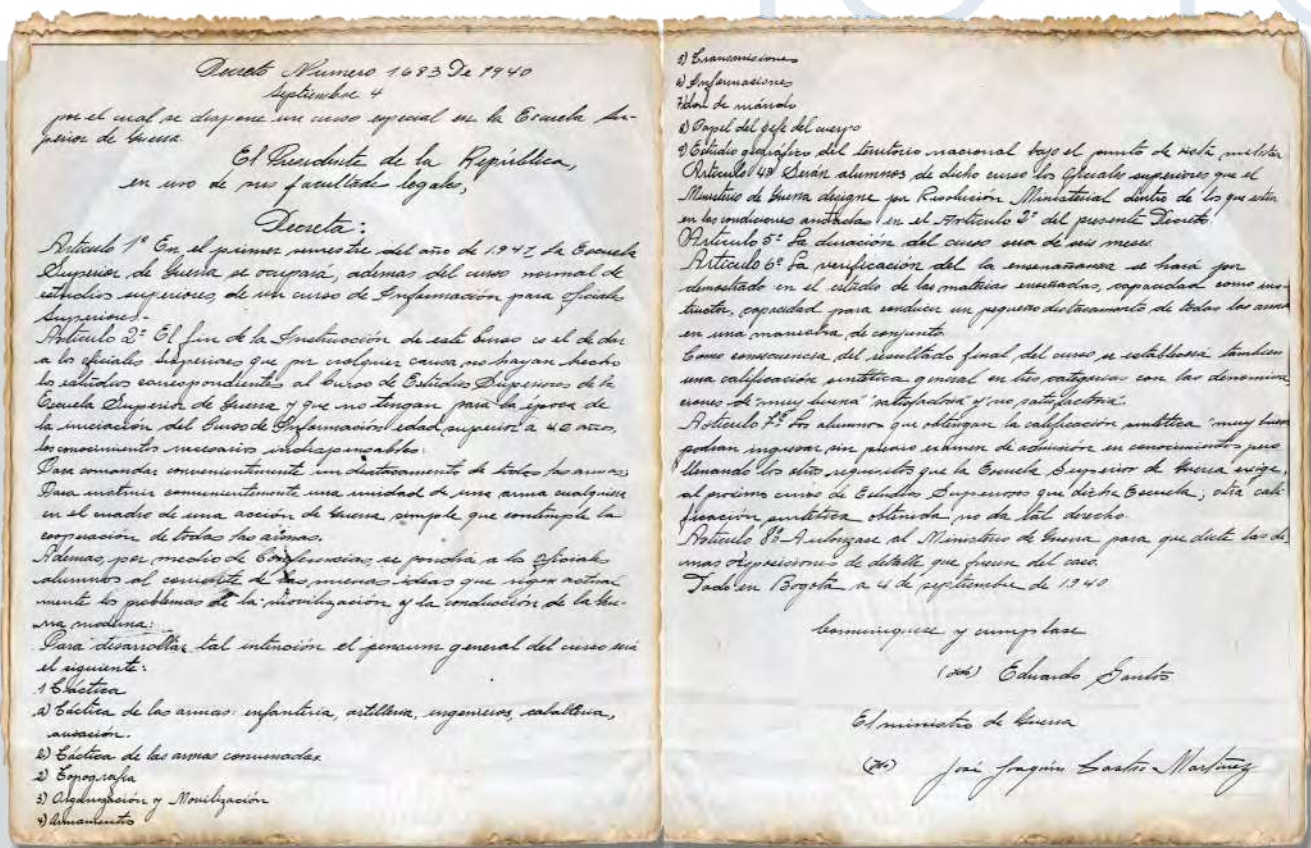 Decreto Numero 1683 De 1940
Septiembre 4
por el cual se dispone un curso especial en la Escuela Su-
perior de Guerra
El Presidente de la República,
en uso de sus facultades legales,
Decreta:
Artículo 1º En el primer semestre del año de 1.941 la Escuela
Superior de Guerra se ocupará, ademas del curso normal de
estudios superiores, de un curso de Información para oficiales
Superiores.-
Artículo 2º El fin de la Instrucción de este Curso es el de dar
a los oficiales superiores que por cualquier causa no hayan hecho
los estudios correspondientes al Curso de Estudios Superiores de la
Escuela Superior de Guerra y que no tengan para la época de
la iniciación del Curso de Información edad superior a 40 años,
los conocimientos necesarios indispensables:
Para comandar convenientemente un destacamento de todas las armas;
Para instruir convenientemente una unidad de una arma cualquiera
en el cuadro de una acción de Guerra simple que contemple la
cooperación de todas las armas.
Ademas, por medio de Conferencias, se pondrá a los oficiales
alumnos al corriente de las nuevas ideas que rigen actual
mente los problemas de la movilización y la conducción de la Gue-
rra moderna:
Para desarrollar tal intención el pensum general del curso será
el siguiente:
1 Táctica
a) Táctica de las armas: infantería, artillería, ingenieros, caballería,
aviación.
b) Táctica de las armas convinadas.
2) Topografía
3) Organización y Movilización
4) Armamentos
5) Transmisiones
6) Informaciones
7) don de mando
8) Papel del gefe del cuerpo
9) Estudio geográfico del territorio nacional bajo el punto de vista militar
Artículo 4º Serán alumnos de dicho curso los Oficiales superiores que el
Ministerio de Guerra designe por Resolución Ministerial dentro de los que esten
en las condiciones anotadas en el Artículo 2º del presente Decreto.
Artículo 5º La duración del curso sera de seis meses.
Artículo 6º La verificación del la enseñanza se hará por
demostrado en el estudio de las materias enseñadas, capacidad como ins-
tructor, capacidad para conducir un pequeño destacamento de todas las armas
en una maniobra de conjunto.
Como consecuencia del resultado final del curso se establecerá tambien
una calificación sintética general en tres categorias con las denomina-
ciones de "muy buena" "satisfactoria" y "no satisfactoria".
Artículo 7º Los alumnos que obtengan la calificación sintética "muy buena
podran ingresar sin previo examen de admisión en conocimientos pero
llenando los otros requisitos que la Escuela Superior de Guerra exige,
al proximo curso de Estudios Superiores que dicha Escuela; otra cali-
ficación sintética obtenida no da tal derecho.
Artículo 8º Autorizase al Ministerio de Guerra para que dicte las de
mas disposiciones de detalle que fueren del caso.
Dado en Bogotá a 4 de septiembre de 1.940
Comuniquese y cumplase
Eduardo Santos
El ministro de Guerra
José Joaquín Castro Martínez